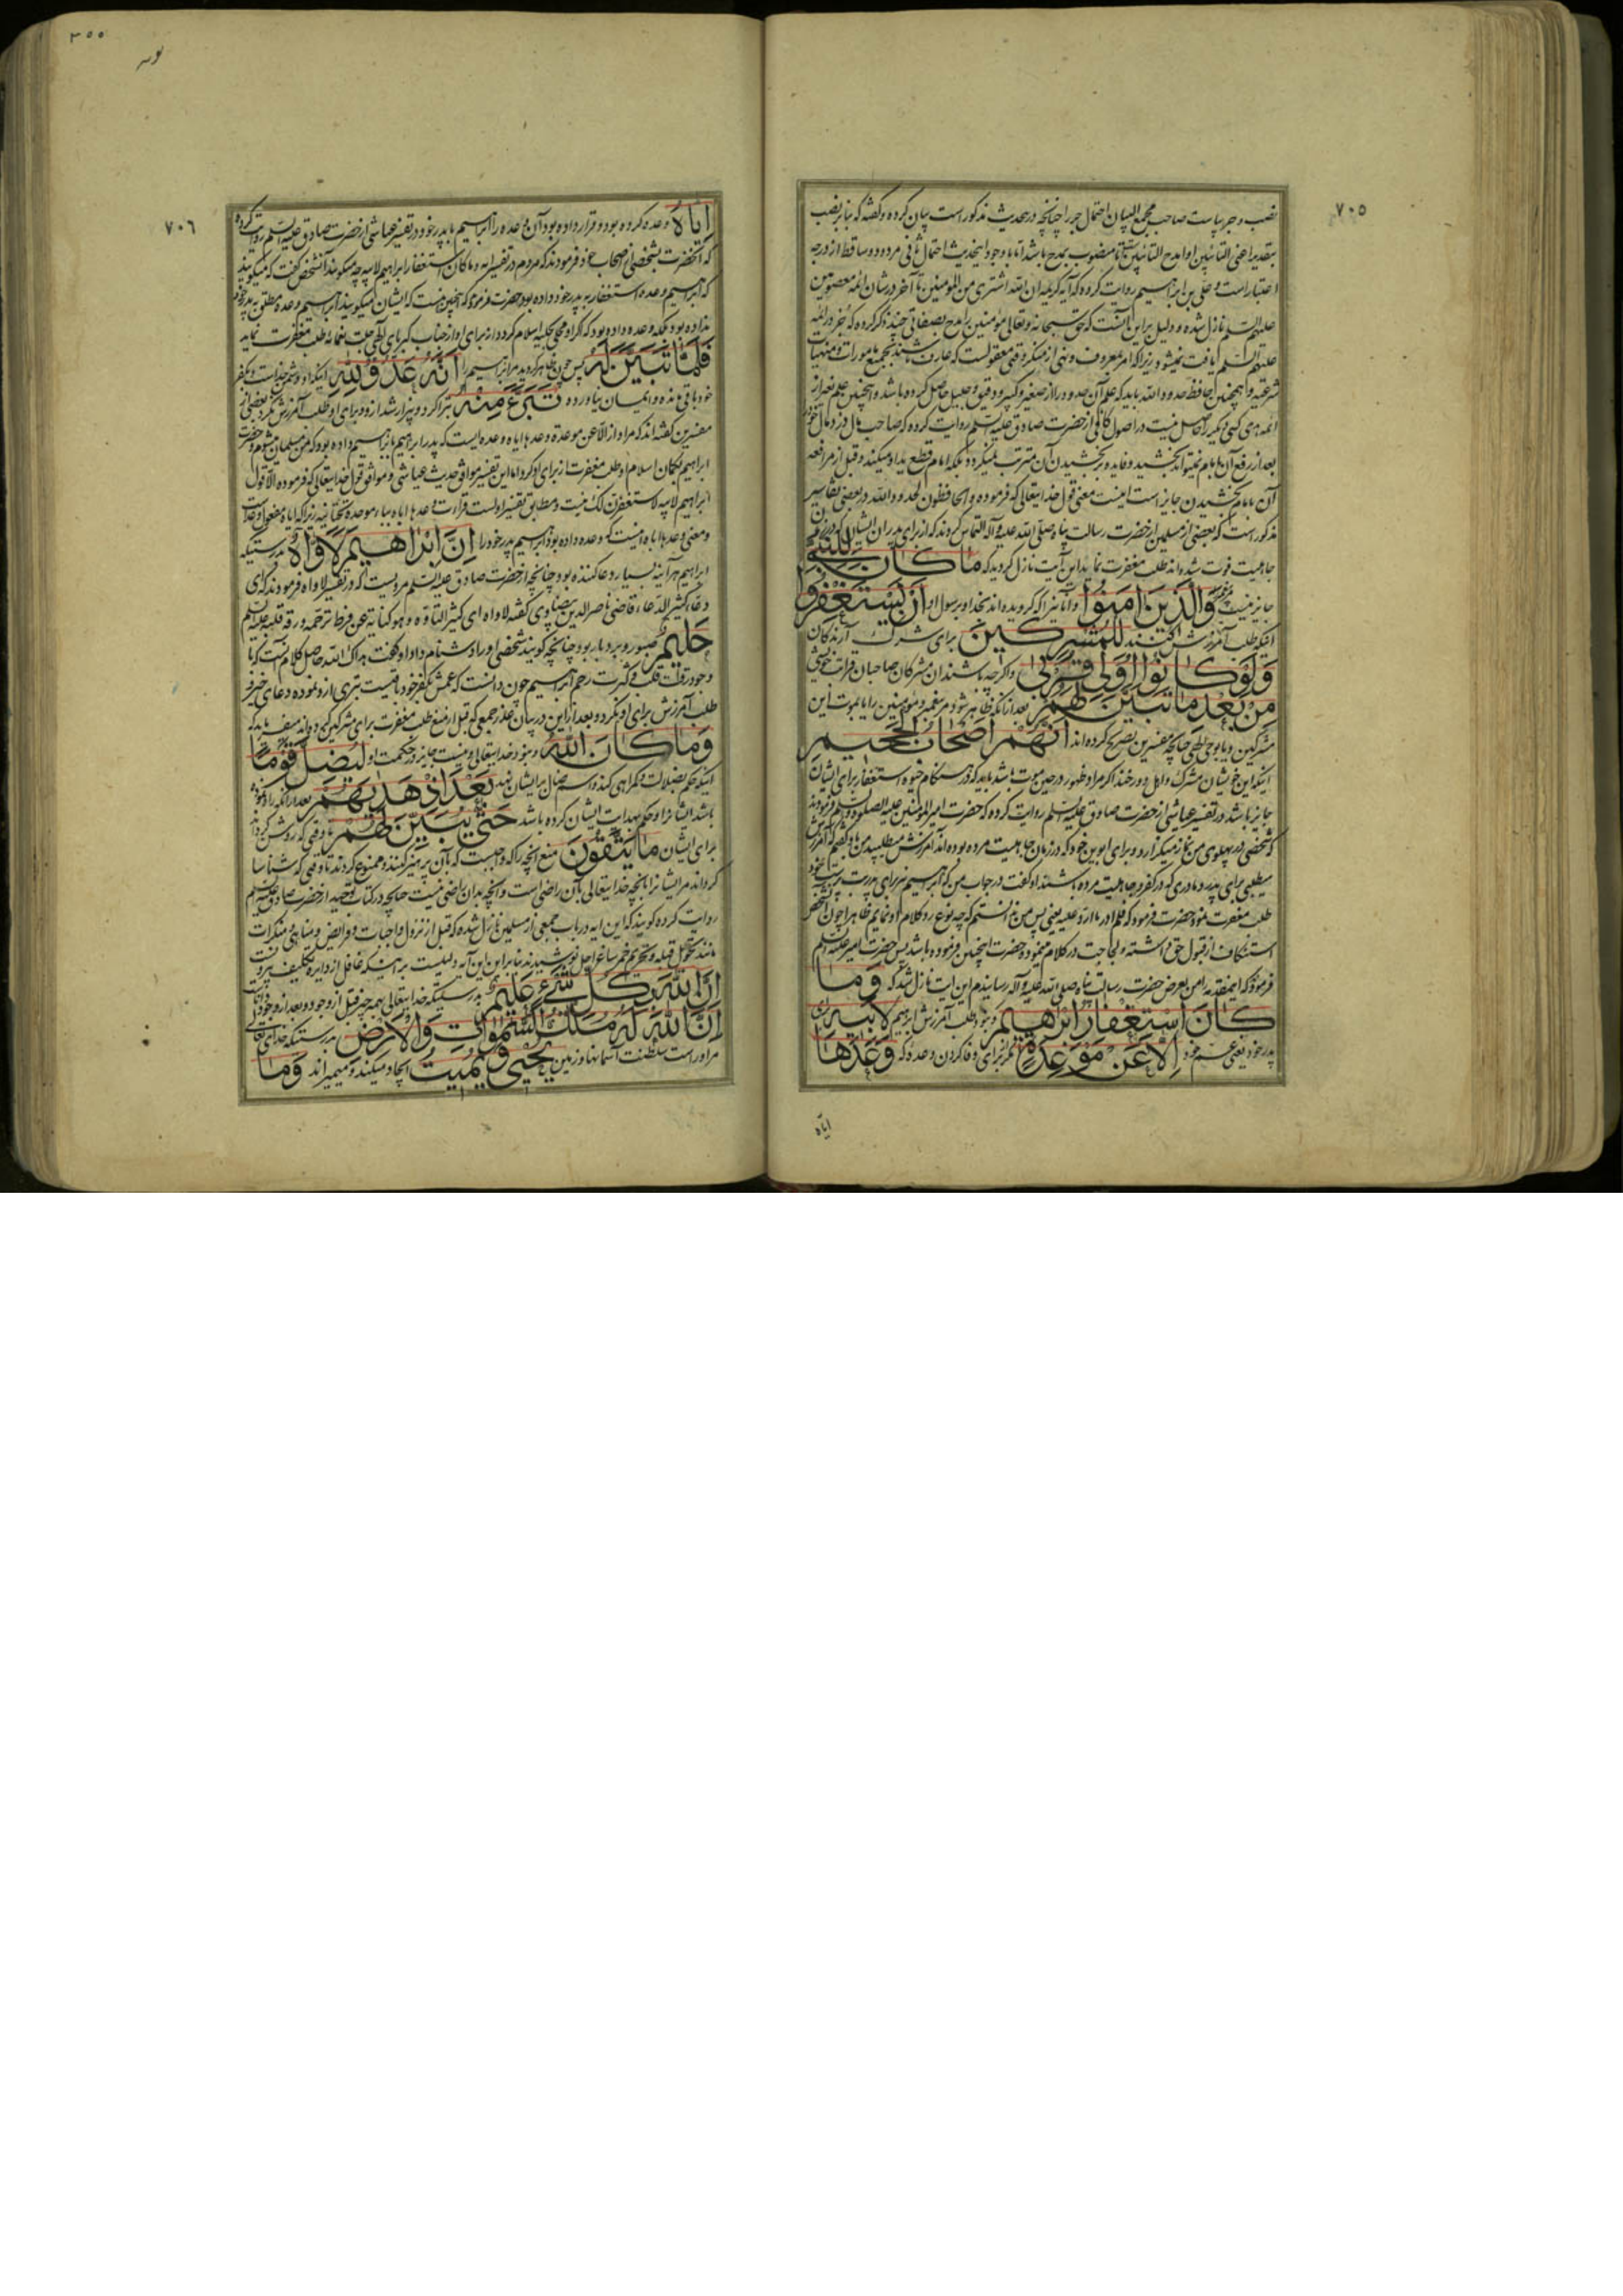 ٧٠٥
نصب و جر پیاست صاحب مجمع البیان احتمال جر را چنانچه در حدیث مذکور است بیان کرده و گفته که بنابر نصب
بتقدیر اعنی التائبین او امدح التائبین منصوب بمدح باشد اما با وجود اینحدیث احتمال ثانی مردود و ساقط از درجه
اعتبار است و علی بن ابراهیم روایت کرده که آیه کریمه ان الله اشتری من المؤمنین تا آخر در شان ائمه معصومین
علیهم السلم نازل شده و دلیل براین آنست که حق سبحانه و تعالی مؤمنین را مدح بصفاتی چند ذکر کرده که جز در ائمه
علیهم السلم یافت نمیشود زیرا که امر بمعروف و نهی از منکر وقتی معقولست که عارف باشند بجمیع مامورات و منهیات
شرعیه و همچنین حافظ حدود الله باید که علم آن حدود را از صغیر و کبیر و دقیق و جلیل حاصل کرده باشد و همچنین علم بغیر از
ائمه هدی کسی دیگر را حاصل نیست در اصول کافی از حضرت صادق علیه السلم روایت کرده که صاحب مال دزد مال خود
بعد از رفع آن بامام نمیتواند بخشید و فایده بر بخشیدن آن مترتب نمیگردد بلکه امام قطع ید او میکند و قبل از مرافعه
آن بامام بخشیدن جایز است اینست معنی قول خدایتعالی که فرموده والحافظون لحدود الله در بعضی تفاسیر
مذکور است که بعضی از مسلمین از حضرت رسالت پناه صلی الله علیه و آله التماس کردند که از برای پدران ایشان که در
جاهلیت فوت شده اند طلب مغفرت نماید این آیت نازل گردید که ما کان للنبی
جایز نیست والذین امنوا و آنانیرا که گرویده اند بخدا و برسول او ان یستغفروا
اینکه طلب آمرزش کنند للمشرکین برای شرک آرندگان
ولو کانوا اولی قربی و اگرچه باشند آن مشرکان صاحبان قرابت
من بعد ما تبین لهم بعد از آنکه ظاهر شود مر پیغمبر و مؤمنین را یا بموت این
مشرکین و یا بوحی الهی چنانچه مفسرین تصریح کرده اند انهم اصحاب الجحیم
اینکه این خویشان مشرک و اهل دوزخند اگر مراد ظهور در حین موت باشد باید که در هنگام حیوة استغفار برای ایشان
جایز باشد در تفسیر عیاشی از حضرت صادق علیه السلم روایت کرده که حضرت امیر المؤمنین علیه الصلوة و السلم فرمودند
که شخصی در پهلوی من نماز میگزارد و برای ابوین خود که در زمان جاهلیت مرده بوده اند آمرزش میطلبید من باو گفتم که آمرزش
میطلبی برای پدر و مادری که در کفر و جاهلیت مرده باشند او گفت در جواب من که ابراهیم نیز برای پدر بت پرست خود
طلب مغفرت نمود حضرت فرمود که فلم ادر ما ارد علیه یعنی پس من ندانستم که چه نوع رد کلام او نمایم ظاهرا چون آنشخص
استنکاف از قبول حق داشته و لجاجت در کلام مینموده حضرت اینچنین فرموده باشد پس حضرت امیر علیه السلم
فرمود که اینمقدمه را من بعرض حضرت رسالت پناه صلی الله علیه و آله رسانیدم این ایت نازل شد که وما
کان استغفار ابرهیم و نبود طلب آمرزش ابرهیم لابیه برای
پدر خود یعنی عم خود الا عن موعدة مگر برای وفا کردن وعده که وعدها
ایاه
٣٥٥
٧٠٦
ایاه وعده کرده بود و قرار داده بود آن وعده را ابراهیم با پدر خود و در تفسیر عیاشی از حضرت صادق علیه السلم روایت کرده
که آنحضرت بشخصی از اصحاب خود فرمودند که مردم در تفسیر آیه و ما کان استغفار ابراهیم لابیه چه میگویند آنشخص گفت که میگویند
که ابراهیم وعده استغفار به پدر خود داده بود حضرت فرمود که اینچنین نیست که ایشان میگویند ابراهیم وعده مطلق به پدر خود
نداده بود بلکه وعده داده بود که اگر او محلی بحلیه اسلام گردد از برای او از جناب کبریای الهی طلب مغفرت نماید
فلما تبین له پس چون ظاهر گردید مر ابراهیم را انه عدو لله اینکه او دشمن خداست و بکفر
خود باقی مانده و ایمان نیاورده تبرء منه تبرا کرد و بیزار شد ازو و برای او طلب آمرزش نکرد بعضی از
مفسرین گفته اند که مراد از الا عن موعدة وعدها ایاه وعده ایست که پدر ابراهیم با ابراهیم داده بود که من مسلمان میشوم و حضرت
ابراهیم بگمان اسلام او طلب مغفرت از برای او کرد اما این تفسیر موافق حدیث عیاشی و موافق قول خدایتعالی که فرموده الا قول
ابراهیم لابیه لاستغفرن لک نیست و مطابق تفسیر اولست قراءت وعدها اباه بباء موحده تحتانیه زیرا که اباه مفعول وعدست
و معنی وعدها اباه اینست که وعده داده بود ابراهیم پدر خود را ان ابراهیم لاواه بدرستیکه
ابراهیم هر آینه بسیار دعا کننده بود چنانچه از حضرت صادق علیه السلم مرویست که در تفسیر لاواه فرمودند که ای
دعاء کثیر الدعاء قاضی ناصر الدین بیضاوی گفته لاواه ای کثیر التاوه و هو کنایة عن فرط ترحمه و رقة قلبه علیه السلم
حلیم صبور و بردبار بود چنانچه گویند شخصی او را دشنام داد او گفت هداک الله حاصل کلام آنست که با
وجود رقت قلب و کثرت رحم ابراهیم چون دانست که عمش بکفر خود باقیست تبری ازو نموده دعای خیر و
طلب آمرزش برای او نکرد و بعد ازین در بیان عذر جمعی که قبل از منع طلب مغفرت برای مشرکین کرده اند میفرماید که
وما کان الله و نبود خدایتعالی و نیست جایز در حکمت او لیضل قوما
اینکه حکم بضلالت و گمراهی کند و اسم ضال بر ایشان نهد بعد اذ هدیهم بعد از آنکه راه نموده
باشد ایشانرا و حکم بهدایت ایشان کرده باشد حتی یبین لهم تا وقتی که روشن گرداند
برای ایشان ما یتقون منع آنچه را که واجبست که از آن پرهیز کنند و ممنوع گردند تا وقتی که شناسا
گرداند مر ایشانرا بآنچه خدایتعالی بآن راضی است و آنچه بدان راضی نیست چنانچه در کتاب توحید از حضرت صادق علیه السلم
روایت کرده گویند که این ایه در باب جمعی از مسلمین نازل شده که قبل از نزول واجبات و فرایض و مناهی و منکرات
مانند تحویل قبله و تحریم خمر ساغر اجل نوشیدند بنابراین این آیه دلیلست بر اینکه غافل از دایره تکلیف بیرونست
ان الله بکل شیء علیم بدرستیکه خدایتعالی بهمه چیز قبل از وجود و بعد از وجود داناست
ان الله له ملک السموات والارض بدرستیکه خدای تعالی
مر اوراست سلطنت آسمانها و زمین یحیی و یمیت ایجاد میکند و میمیراند وما